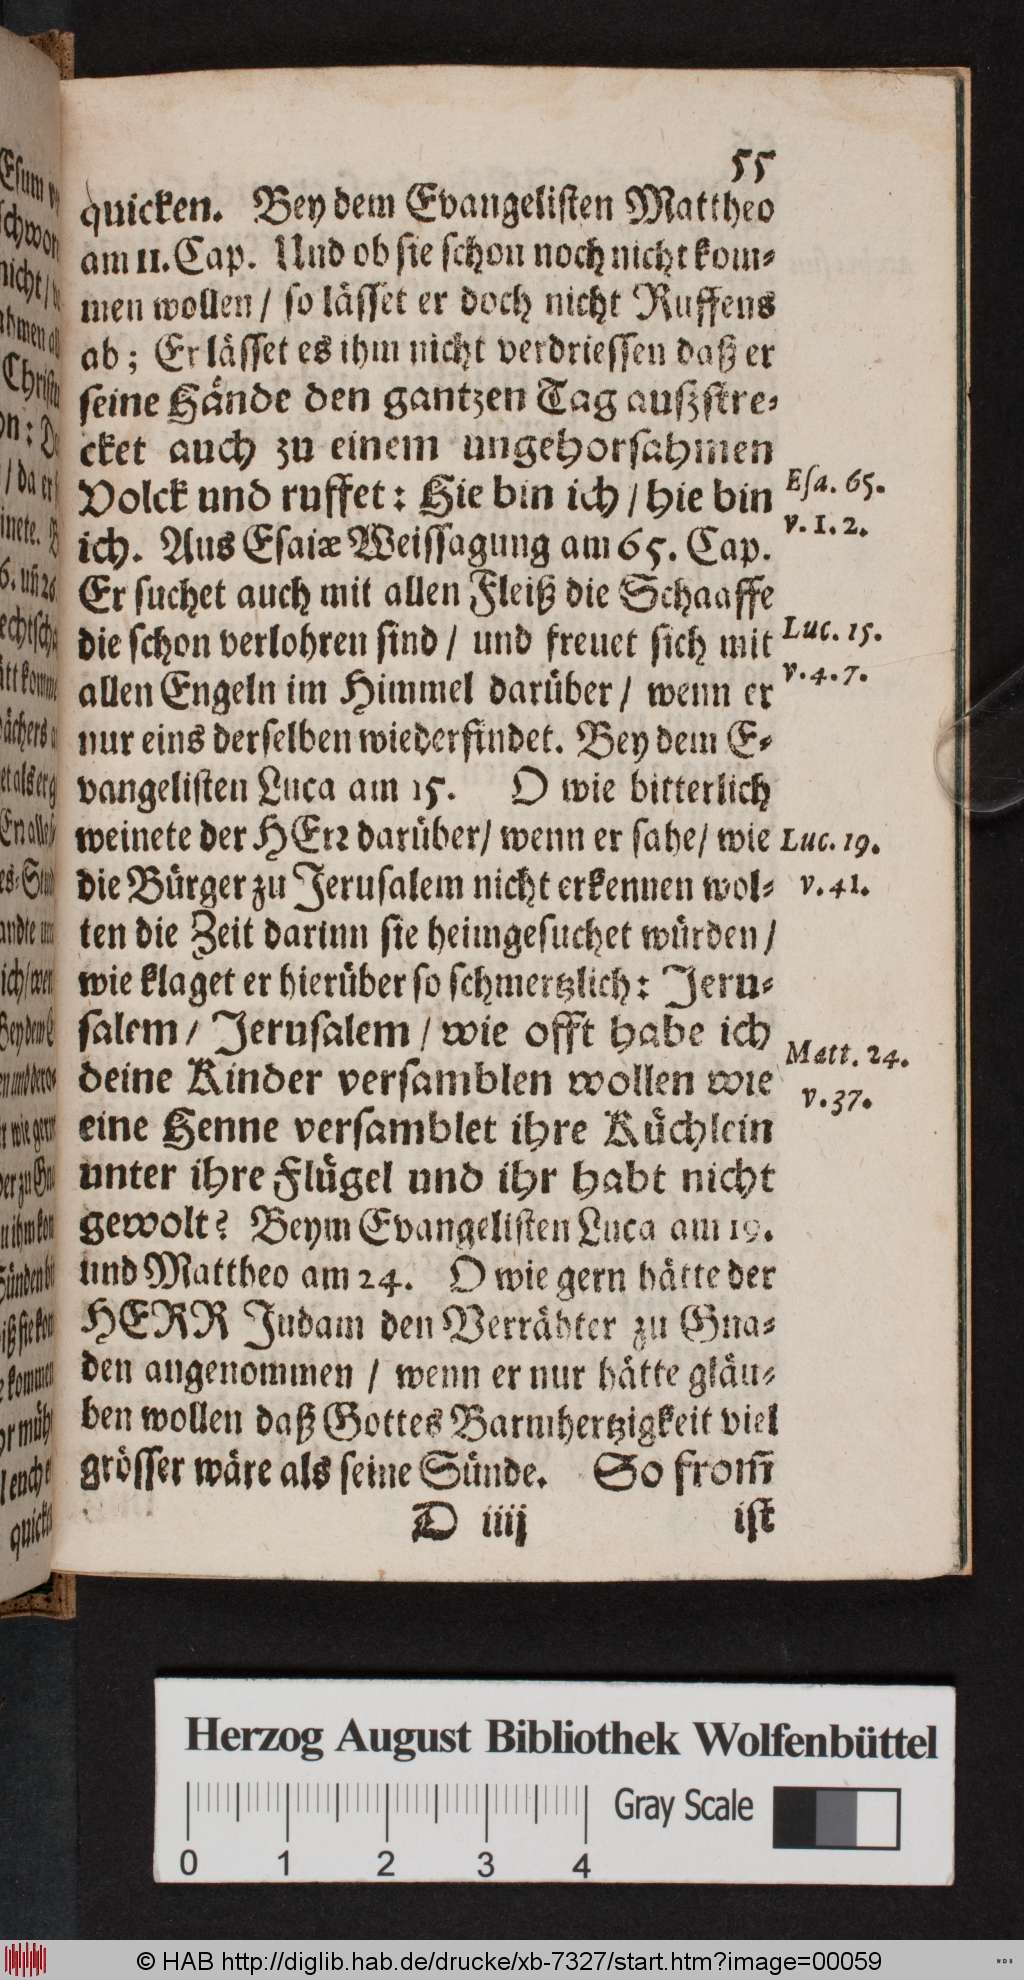 55
quicken. Bey dem Evangelisten Mattheo
am 11. Cap. Und ob sie schon noch nicht kom-
men wollen / so lässet er doch nicht Ruffens
ab; Er lässet es ihm nicht verdriessen daß er
seine Hände den gantzen Tag außstre-
cket auch zu einem ungehorsahmen
Volck und ruffet: Hie bin ich / hie bin
Esa. 65.
v. 1. 2.
ich. Aus Esaiæ Weissagung am 65. Cap.
Er suchet auch mit allen Fleiß die Schaaffe
die schon verlohren sind / und freuet sich mit
Luc. 15.
v. 4. 7.
allen Engeln im Himmel darüber / wenn er
nur eins derselben wiederfindet. Bey dem E-
vangelisten Luca am 15. O wie bitterlich
weinete der HErr darüber / wenn er sahe / wie
Luc. 19.
v. 41.
die Bürger zu Jerusalem nicht erkennen wol-
ten die Zeit darinn sie heimgesuchet würden /
wie klaget er hierüber so schmertzlich: Jeru-
salem / Jerusalem / wie offt habe ich
Matt. 24.
v. 37.
deine Kinder versamblen wollen wie
eine Henne versamblet ihre Küchlein
unter ihre Flügel und ihr habt nicht
gewolt? Beym Evangelisten Luca am 19.
und Mattheo am 24. O wie gern hätte der
HERR Judam den Verrähter zu Gna-
den angenommen / wenn er nur hätte gläu-
ben wollen daß Gottes Barmhertzigkeit viel
grösser wäre als seine Sünde. So from̄
D iiij ist
Herzog August Bibliothek Wolfenbüttel
Gray Scale
0 1 2 3 4
© HAB http://diglib.hab.de/drucke/xb-7327/start.htm?image=00059